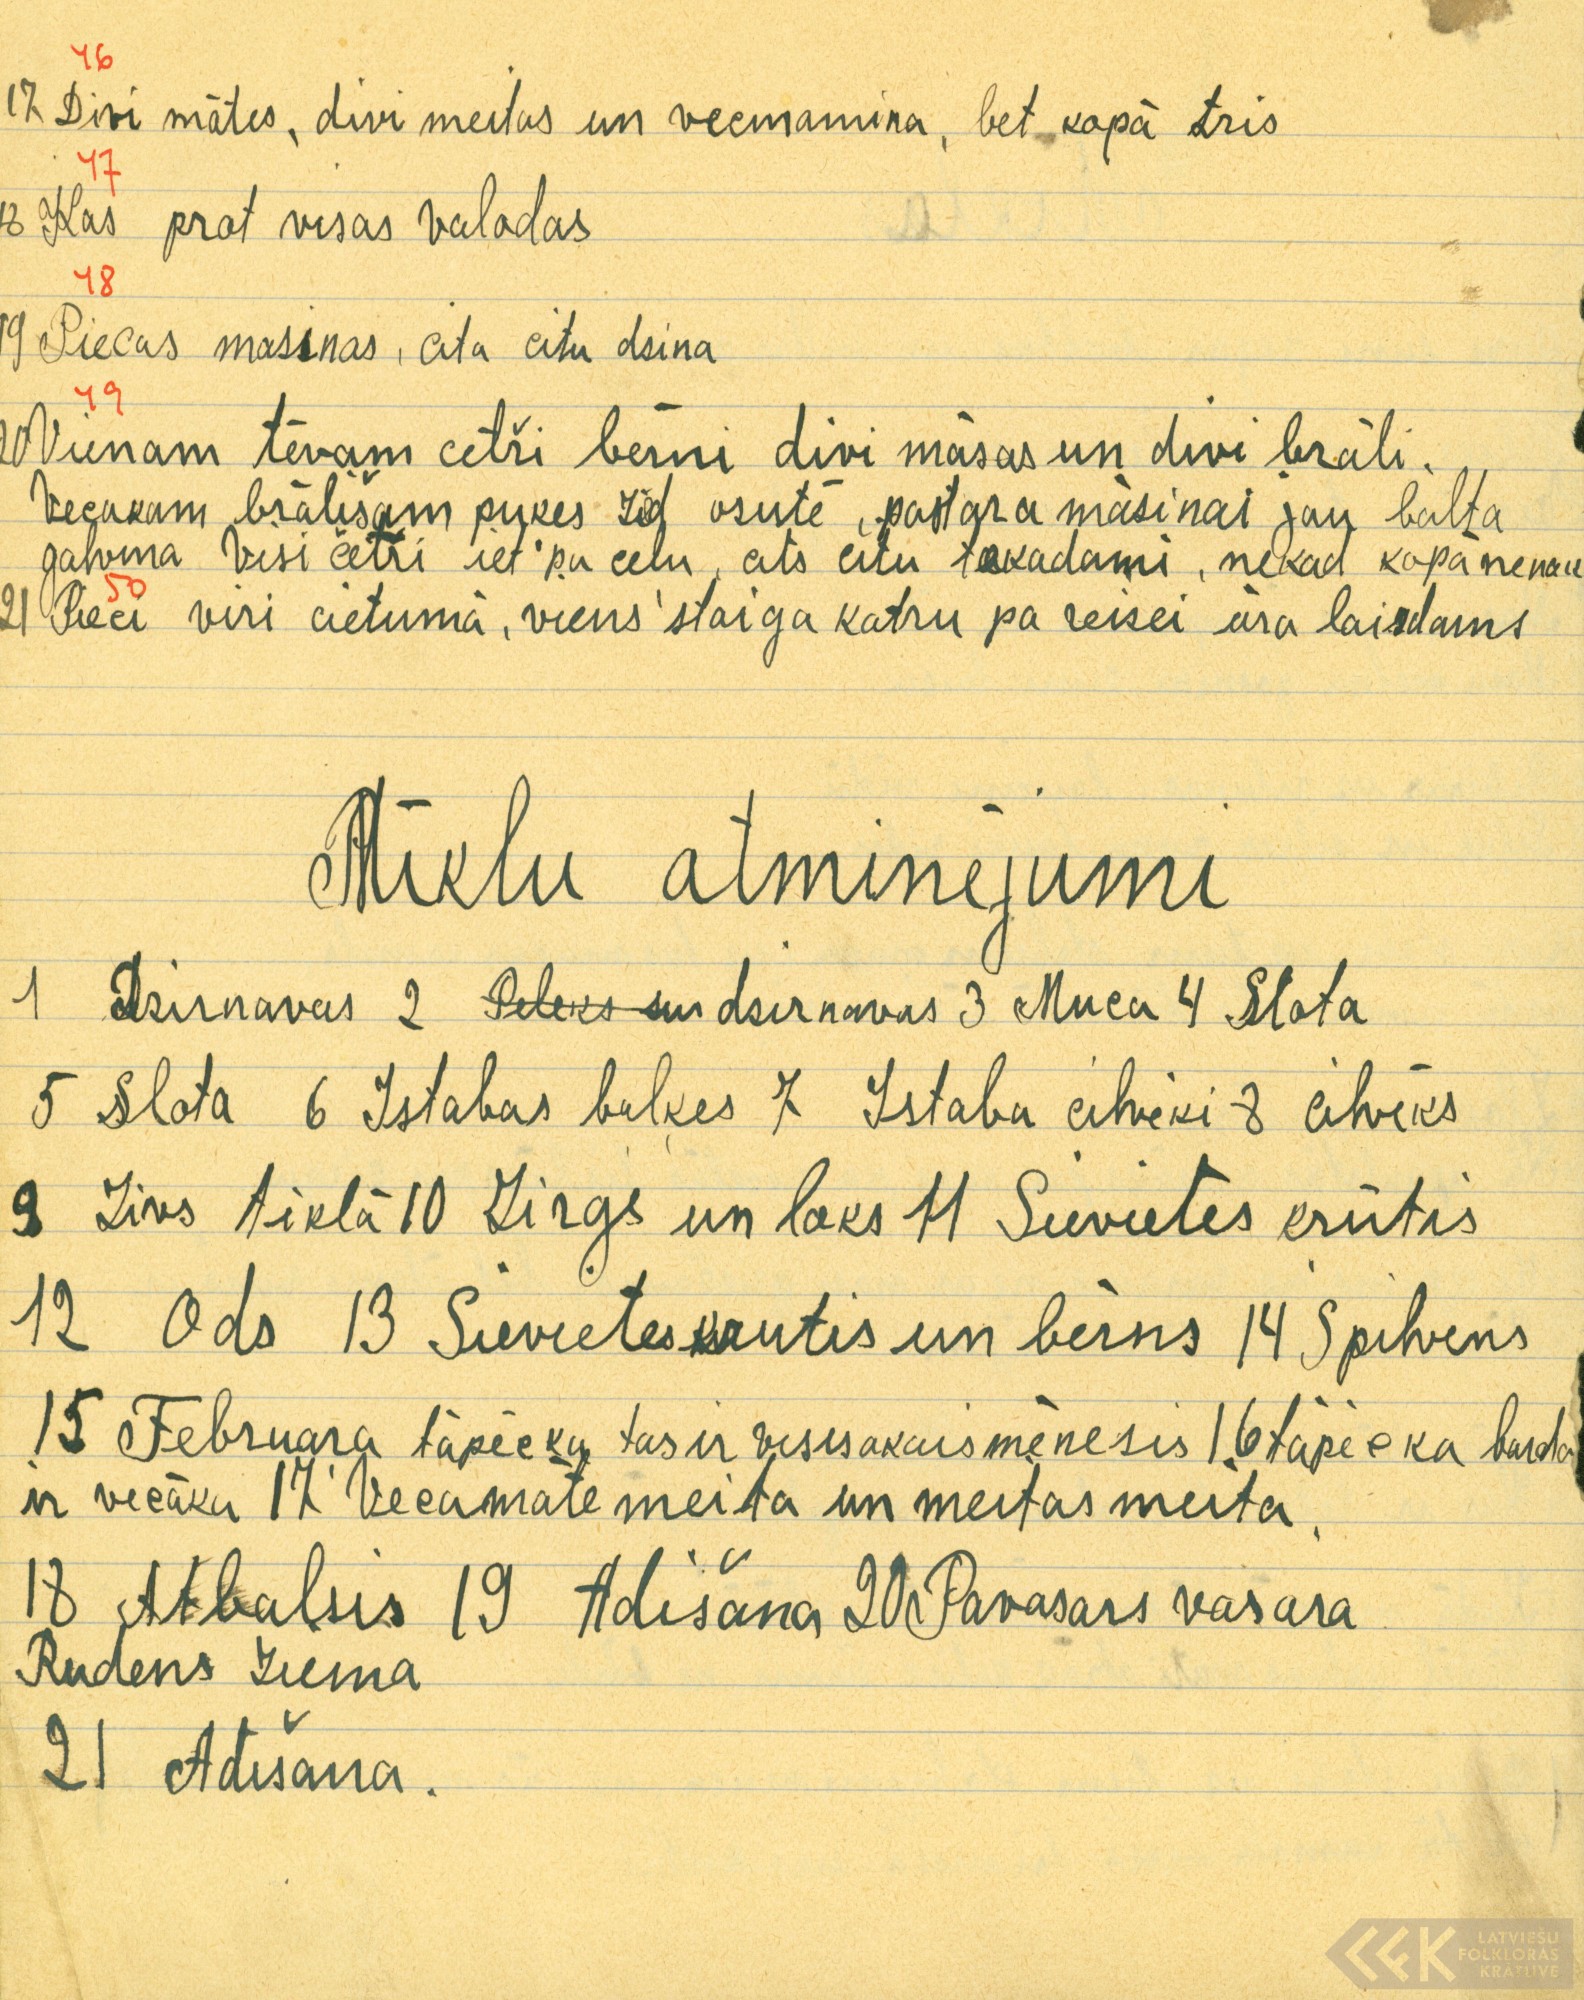 46
17 Divi mātes, divi meitas un vecmamina, bet kopā tris
47
18 Kas prot visas valodas
48
19 Piecas masinas, cita citu dsina
49
20 Vienam tēvam cetři bērni divi māsas un divi brāli.
Vecakam brālišam pukes zied osutē, pastara māsinai jau balta
galvina Visi četri iet pa celu, cits citu takadami, nekad kopā nenau
50
21 Pieci viri cietumā, viens staiga katru pa reisei āra laisdams
Mīklu atminējumi
1 Dsirnavas 2 Peleks un dsirnavas 3 Muca 4 Slota
5 Slota 6 Istabas baļķes 7 Istaba cilvēki 8 cilvēks
9 Zivs tiklā 10 Zirgs un loks 11 Sievietes krūtis
12 Ods 13 Sievietes krutis un bērns 14 Spilvens
15 Februara tāpēc ka tas ir visisakais mēnesis 16 tāpēc ka barda
ir vecāka 17 Vecamāte meita un meitas meita.
18 Atbalsis 19 Adišana 20 Pavasars vasara
Rudens Ziema
21 Adišana.
LATVIEŠU
FOLKLORAS
KRĀTUVE